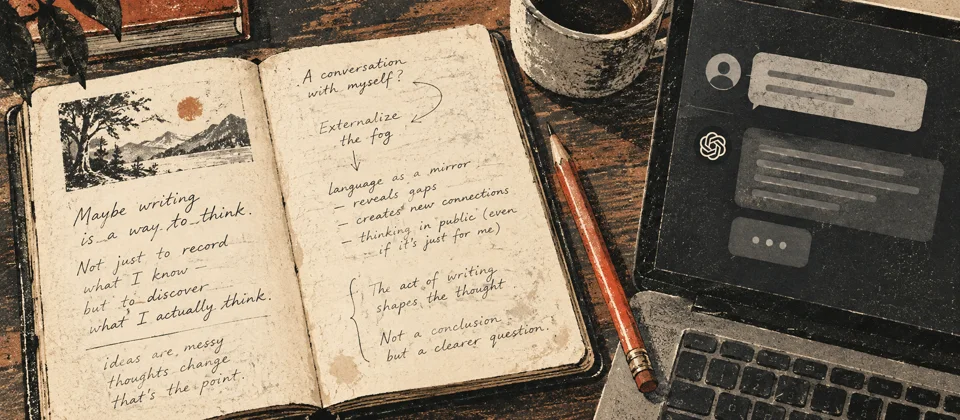 Maybe writing
is a way to think.
Not just to record
what I know —
but to discover
what I actually think.
ideas are messy
thoughts change
that's the point.
A conversation
with myself?
Externalize
the fog
language as a mirror
– reveals gaps
– creates new connections
– thinking in 'public' (even
if it's just for me)
The act of writing
shapes the thought
Not a conclusion,
but a clearer question.